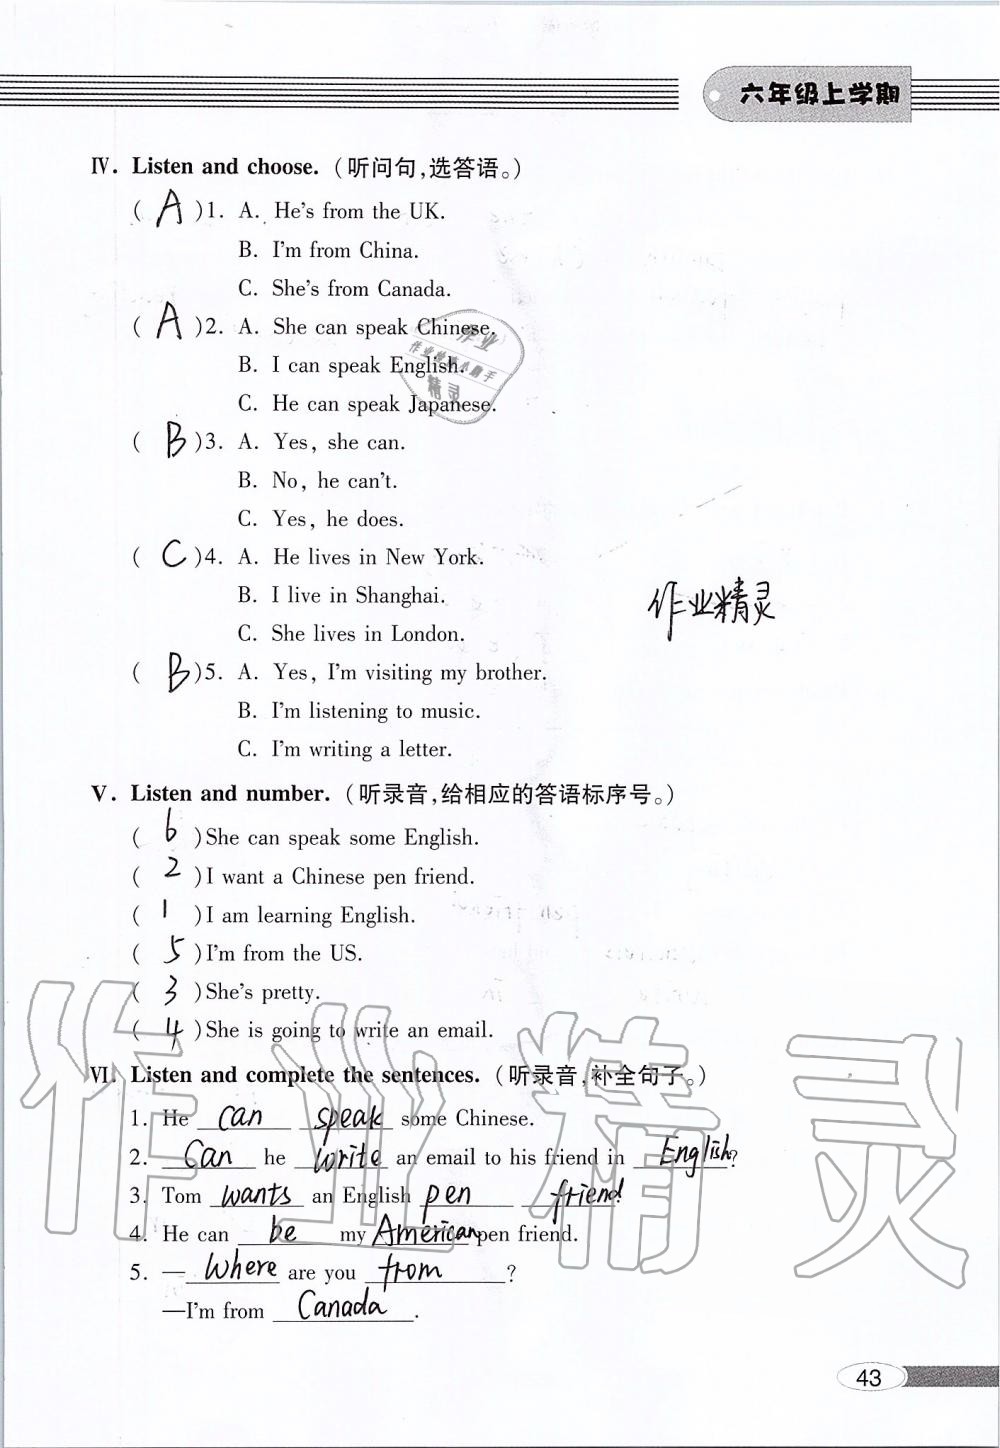 六年级上学期
Ⅳ. Listen and choose. (听问句,选答语。)
( A )1. A. He's from the UK.
B. I'm from China.
C. She's from Canada.
( A )2. A. She can speak Chinese.
B. I can speak English.
C. He can speak Japanese.
( B )3. A. Yes, she can.
B. No, he can't.
C. Yes, he does.
( C )4. A. He lives in New York.
B. I live in Shanghai.
C. She lives in London.
作业精灵
( B )5. A. Yes, I'm visiting my brother.
B. I'm listening to music.
C. I'm writing a letter.
Ⅴ. Listen and number. (听录音,给相应的答语标序号。)
( 6 )She can speak some English.
( 2 )I want a Chinese pen friend.
( 1 )I am learning English.
( 5 )I'm from the US.
( 3 )She's pretty.
( 4 )She is going to write an email.
作业精灵
Ⅵ. Listen and complete the sentences. (听录音,补全句子。)
1. He can speak some Chinese.
2. Can he write an email to his friend in English?
3. Tom wants an English pen friend.
4. He can be my American pen friend.
5. —Where are you from?
—I'm from Canada.
43